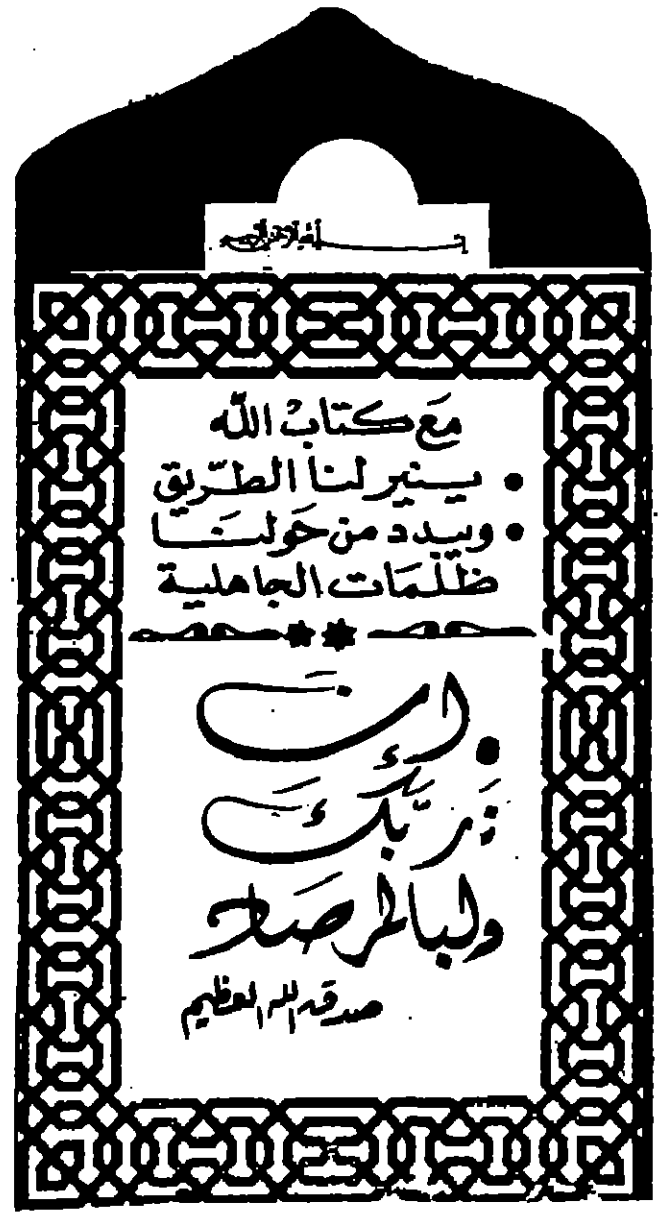 بسم الله الرحمن الرحيم
مَع كتابْ اللّه
• يـنير لنا الطّريق
• ويبدد من حَولنَا
ظلمَات الجاهلية
إن
رَبّكَ
لبالمرصَاد
صدق الله العظيم